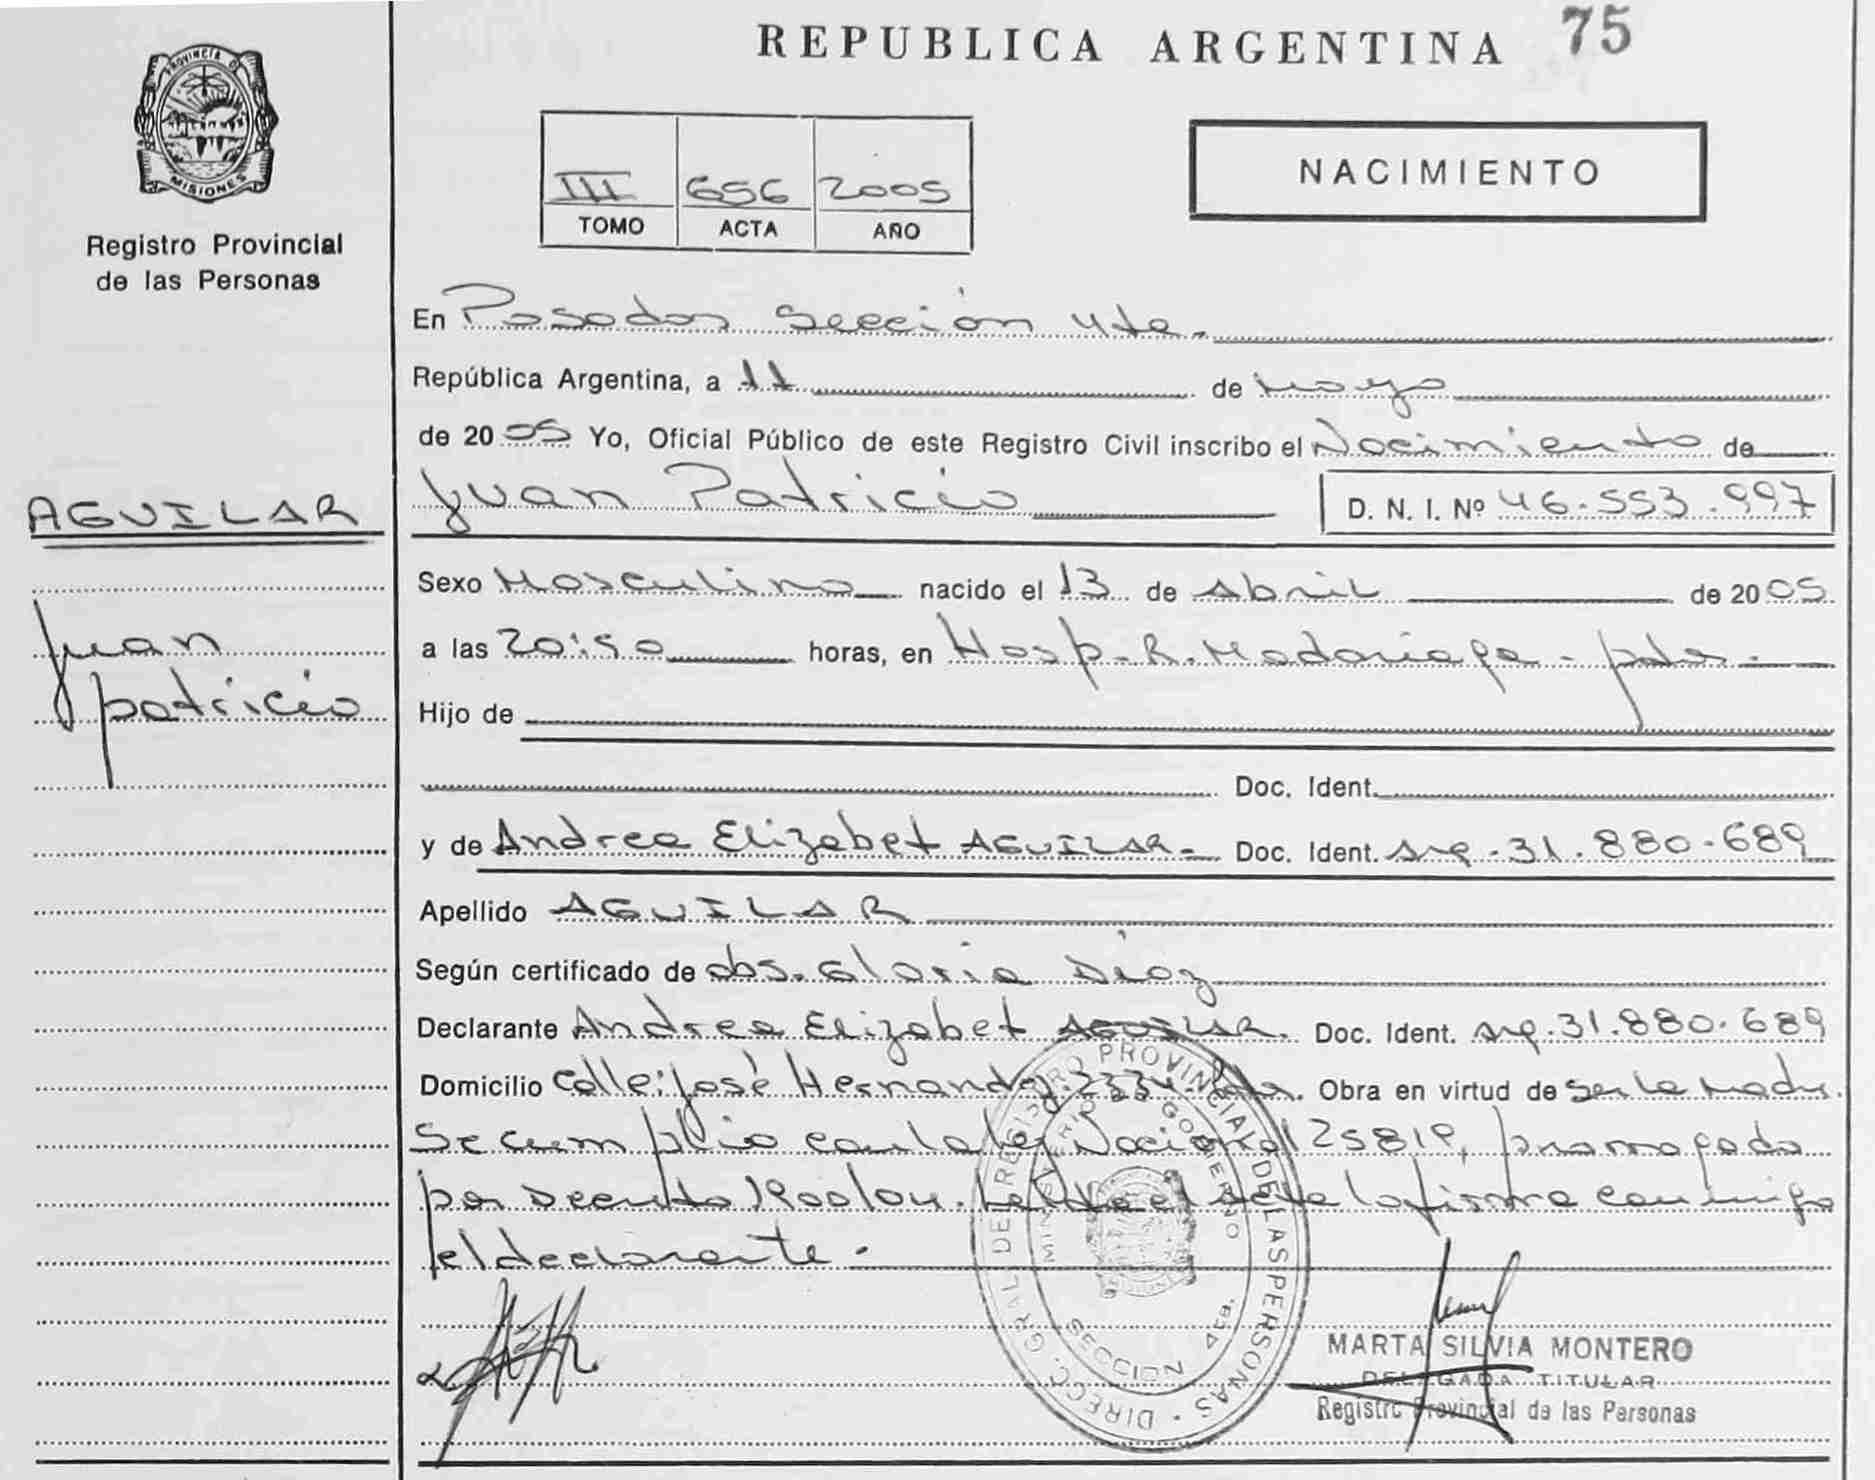 REPUBLICA ARGENTINA 75
PROVINCIA DE
MISIONES
Registro Provincial
de las Personas
III 656 2005
TOMO ACTA AÑO
NACIMIENTO
En Posadas Sección 4ta.
República Argentina, a 11 de Mayo
de 2005 Yo, Oficial Público de este Registro Civil inscribo el Nacimiento de
AGUILAR
Juan Patricio
Juan Patricio D. N. I. Nº 46.553.997
Sexo Masculino nacido el 13 de Abril de 2005
a las 20:50 horas, en Hosp. R. Madariaga - pdas.
Hijo de
Doc. Ident.
y de Andrea Elizabet AGUILAR- Doc. Ident. Arg. 31.880.689
Apellido AGUILAR
Según certificado de obs. Gloria Diaz
Declarante Andrea Elizabet AGUILAR. Doc. Ident. Arg. 31.880.689
Domicilio Calle: José Hernandez 2334 - Pdas. Obra en virtud de ser la Madre.
Se cumplio con la ley Nacional 25819, prorrogada
por Decreto 1900/04. Leida el acta la firma conmigo
el declarante.-
DIRECC. GRAL DE REGISTRO PROVINCIAL DE LAS PERSONAS
MINISTERIO DE GOBIERNO
SECCION 4ta.
MARTA SILVIA MONTERO
DELEGADA TITULAR
Registro Provincial de las Personas